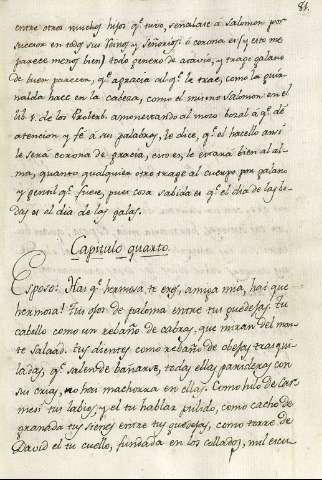 81.
entre otros muchos hijos q.e tuvo, señalase a Salomon por
sucesor en todos sus Reinos y Señorios; o corona es (y esto me
parece menos bien) todo genero de atavio, y trage galano
de buen parecer, q.e agracia al q.e le trae, como la guir
nalda hace en la cabeza, como el mismo Salomon en el
lib. 1. de los Proberb. amonestando al mozo bozal a q.e dé
atencion, y fé a sus palabras, le dice, q.e el hacello ansi
le será corona de gracia, esto es, le estará bien al al-
ma, quanto qualquier otro trage al cuerpo por galano
y gentil q.e fuese, pues cosa sabida es q.e el dia de las bo-
das es el dia de las galas.
Capitulo quarto.
Esposo: Hai q.e hermosa te eres, amiga mia, hai que
hermosa! Tus ojos de paloma entre tus guedejas. Tu
cabello como un rebaño de cabras, que miran del mon-
te Galaad. tus dientes como rebaño de obejas trasqui-
ladas, q.e salen de bañarse, todas ellas parideras con
sus crias, no hai machorra en ellas. Como hilo de car-
mesi tus labios, y el tu hablar pulido, como cacho de
granada tus sienes entre tus guedejas, como torre de
David el tu cuello, fundada en los collados, mil escu